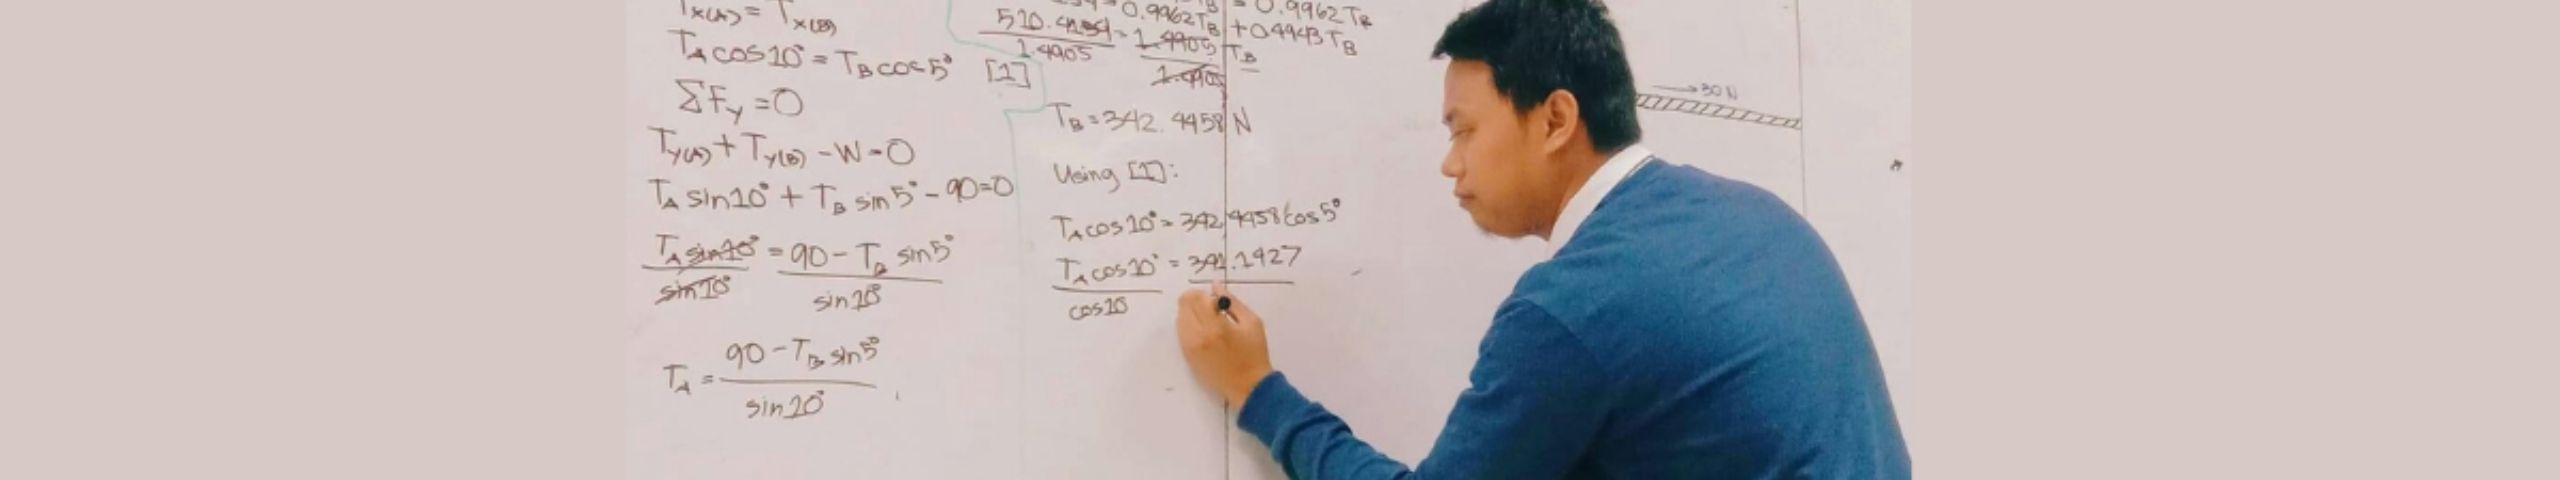 Tx(A) = Tx(B)
TA cos10° = TB cos5° [1]
ΣFy = 0
Ty(A) + Ty(B) - W = 0
TA sin10° + TB sin5° - 90 = 0
TA sin10° = 90 - TB sin5°
sin10° sin10°
TA = 90 - TB sin5°
sin10°
0.9962TB = 0.9962TB
510.4134 = 1.4905 TB + 0.4943TB
1.4905 1.4905
TB = 342.4458 N
Using [1]:
TA cos10° = 342.4458 cos5°
TA cos10° = 341.1427
cos10
30 N